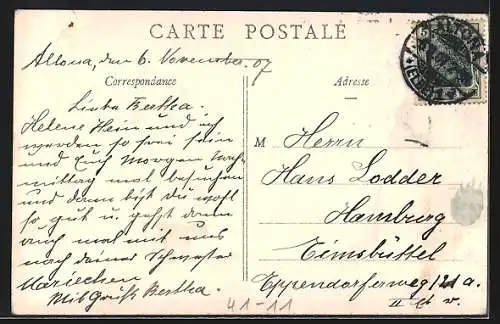 CARTE POSTALE
Altona, den 6. November 07
Correspondance
Adresse
Liebe Bertha.
Helene Hein und ich
werden so frei sein
und Euch Morgen Nach-
mittag mal besuchen
und dann bist Du wohl
so gut u. gehst dann
auch mal mit uns
nach deiner Schwester
Mariechen
Mit Gruß Bertha.
M Herrn
Hans Lodder
Hamburg
Eimsbüttel
Eppendorferweg 121 a.
II Et v.
41-11